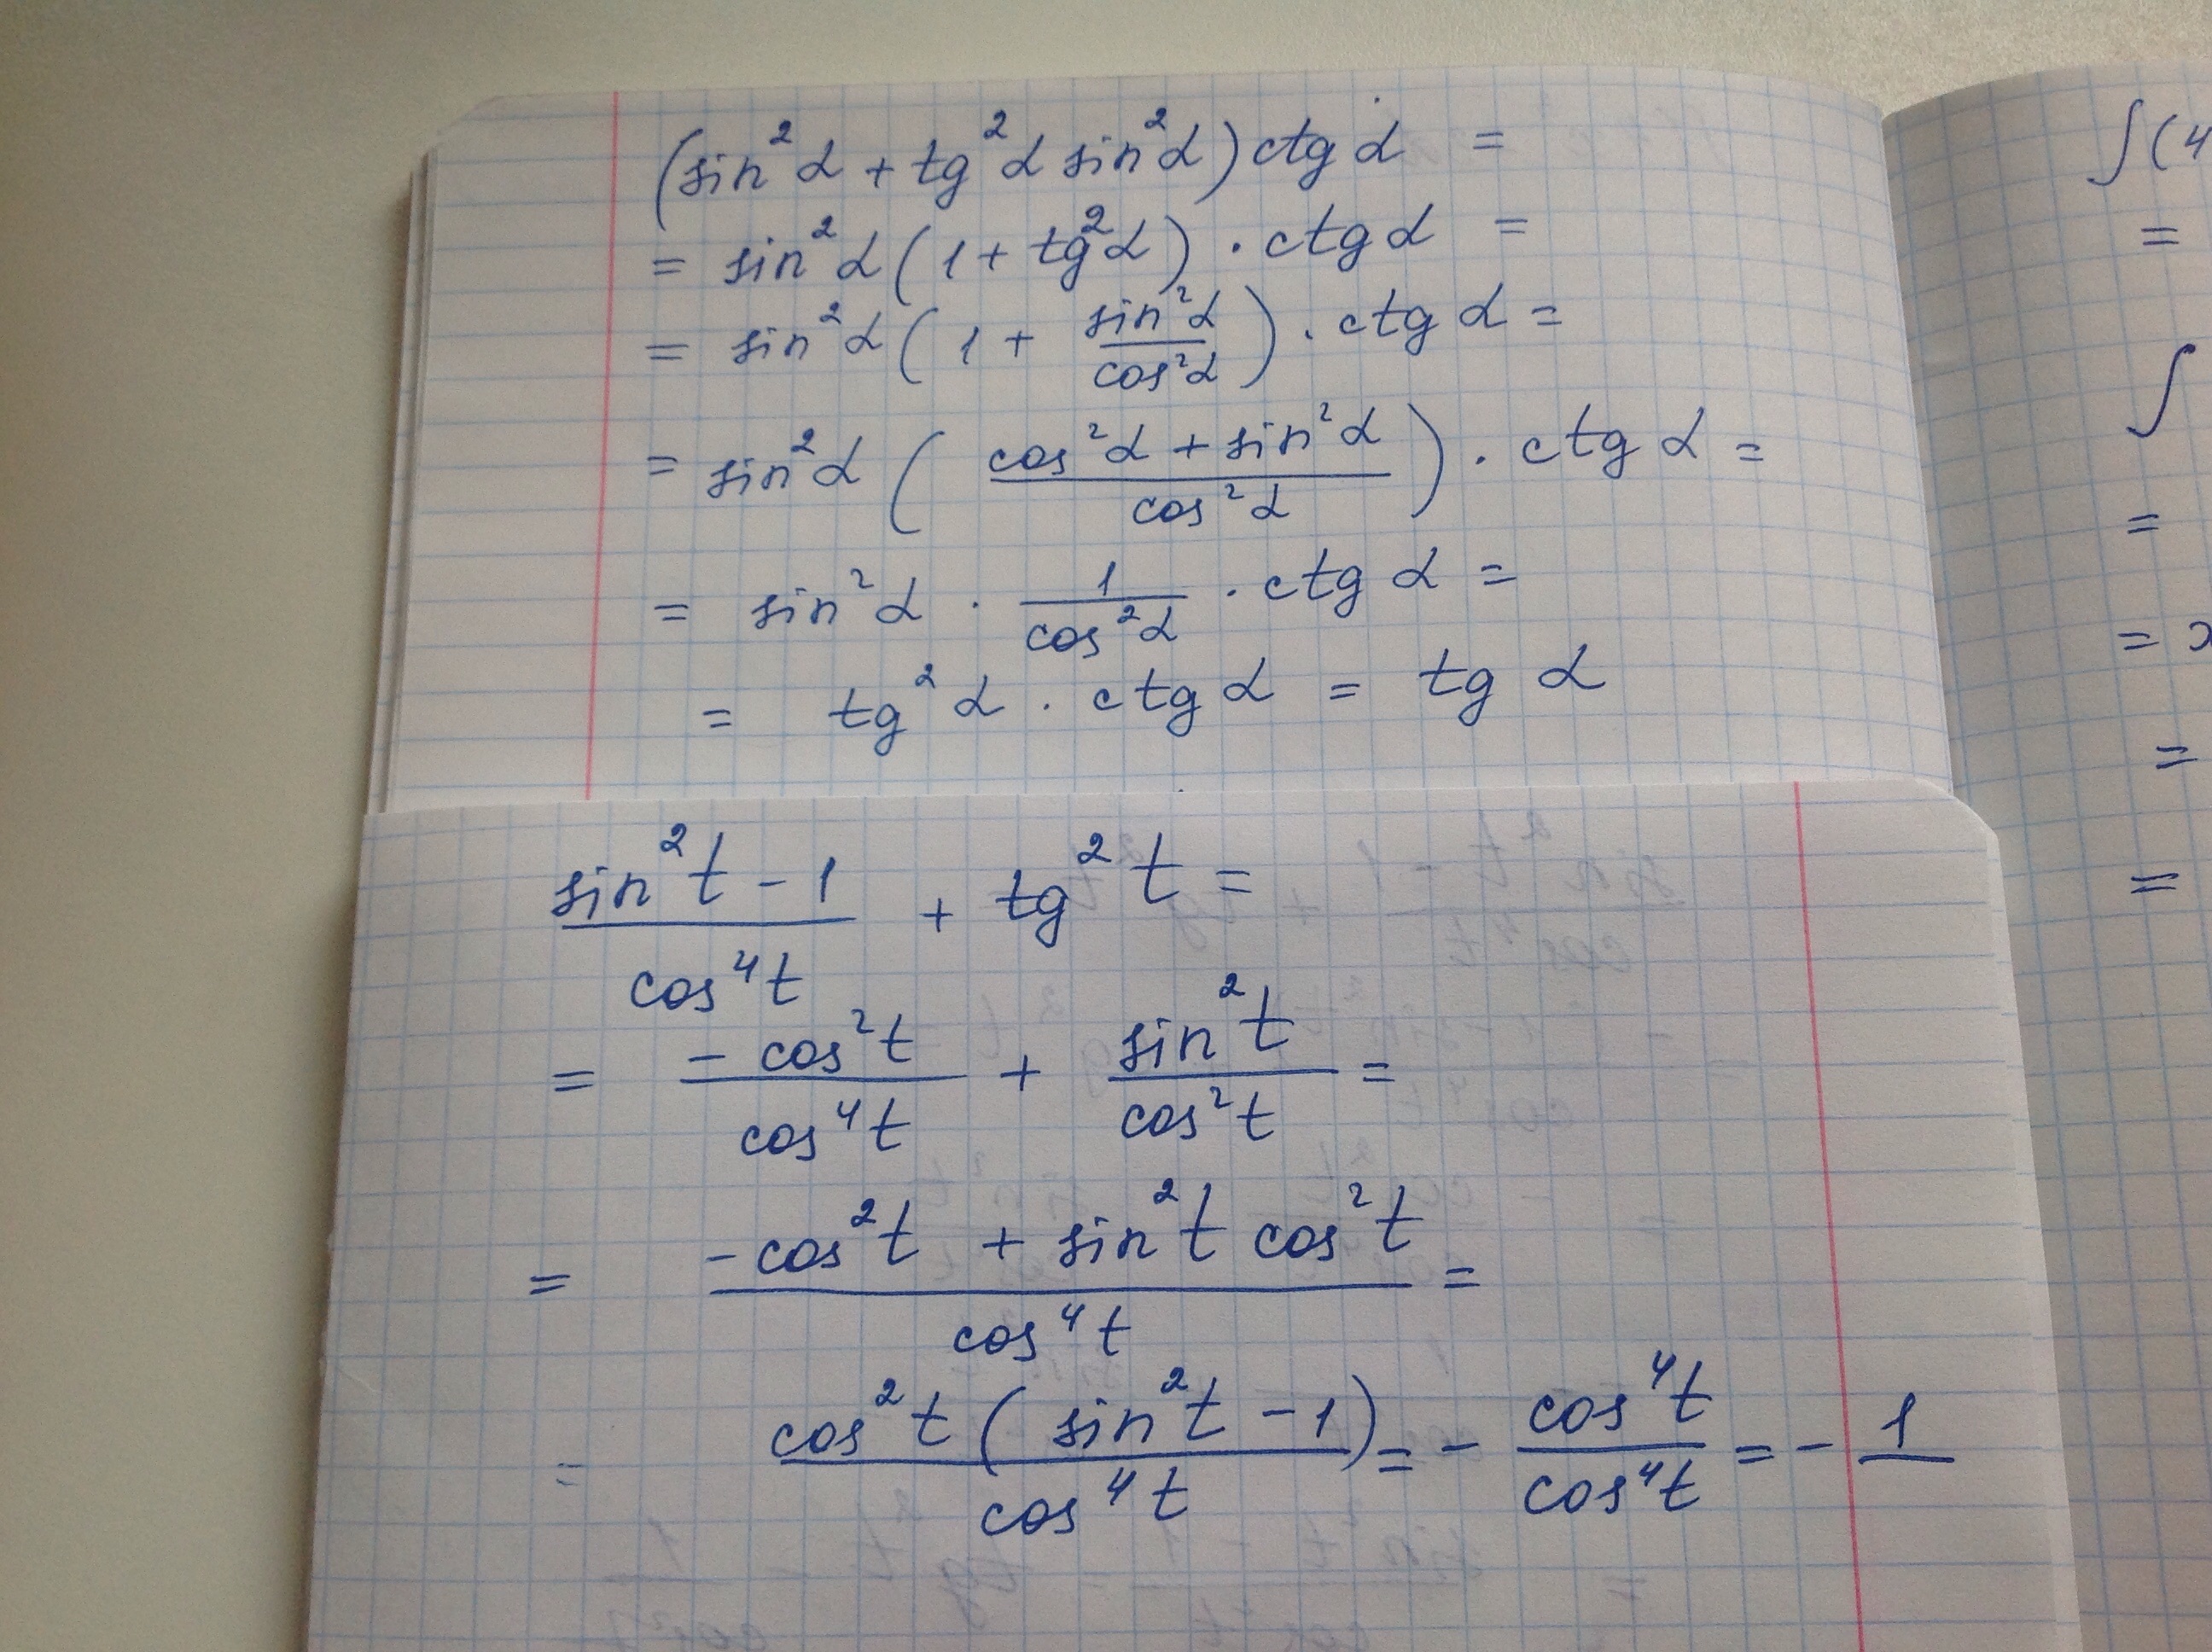 (sin²α + tg²α sin²α) ctg α =
= sin²α (1 + tg²α) · ctg α =
= sin²α (1 + sin²α/cos²α) · ctg α =
= sin²α ((cos²α + sin²α)/cos²α) · ctg α =
= sin²α · 1/cos²α · ctg α =
= tg²α · ctg α = tg α
(sin²t - 1)/cos⁴t + tg²t =
= -cos²t/cos⁴t + sin²t/cos²t =
= (-cos²t + sin²t cos²t)/cos⁴t =
= cos²t (sin²t - 1)/cos⁴t = - cos⁴t/cos⁴t = - 1
∫(4
=
∫
=
=
=
=